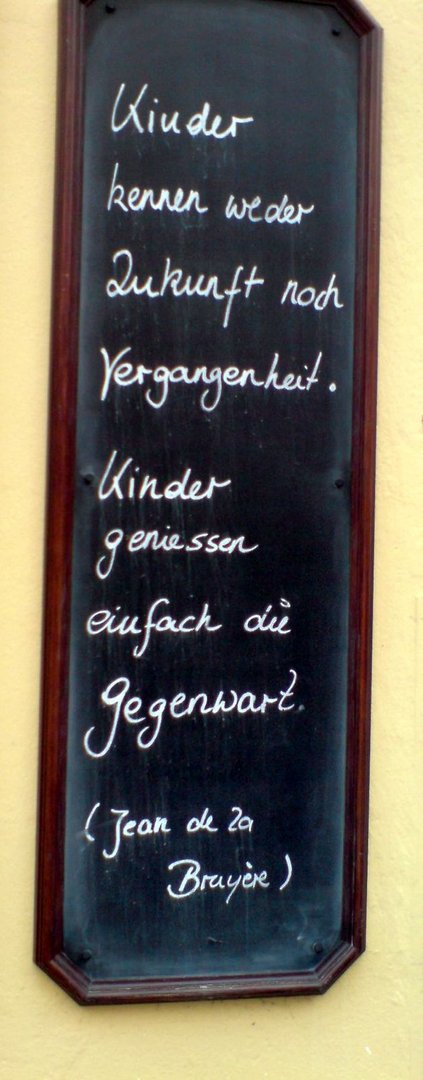 Kinder
kennen weder
Zukunft noch
Vergangenheit.
Kinder
geniessen
einfach die
Gegenwart.
(Jean de la
Bruyère)